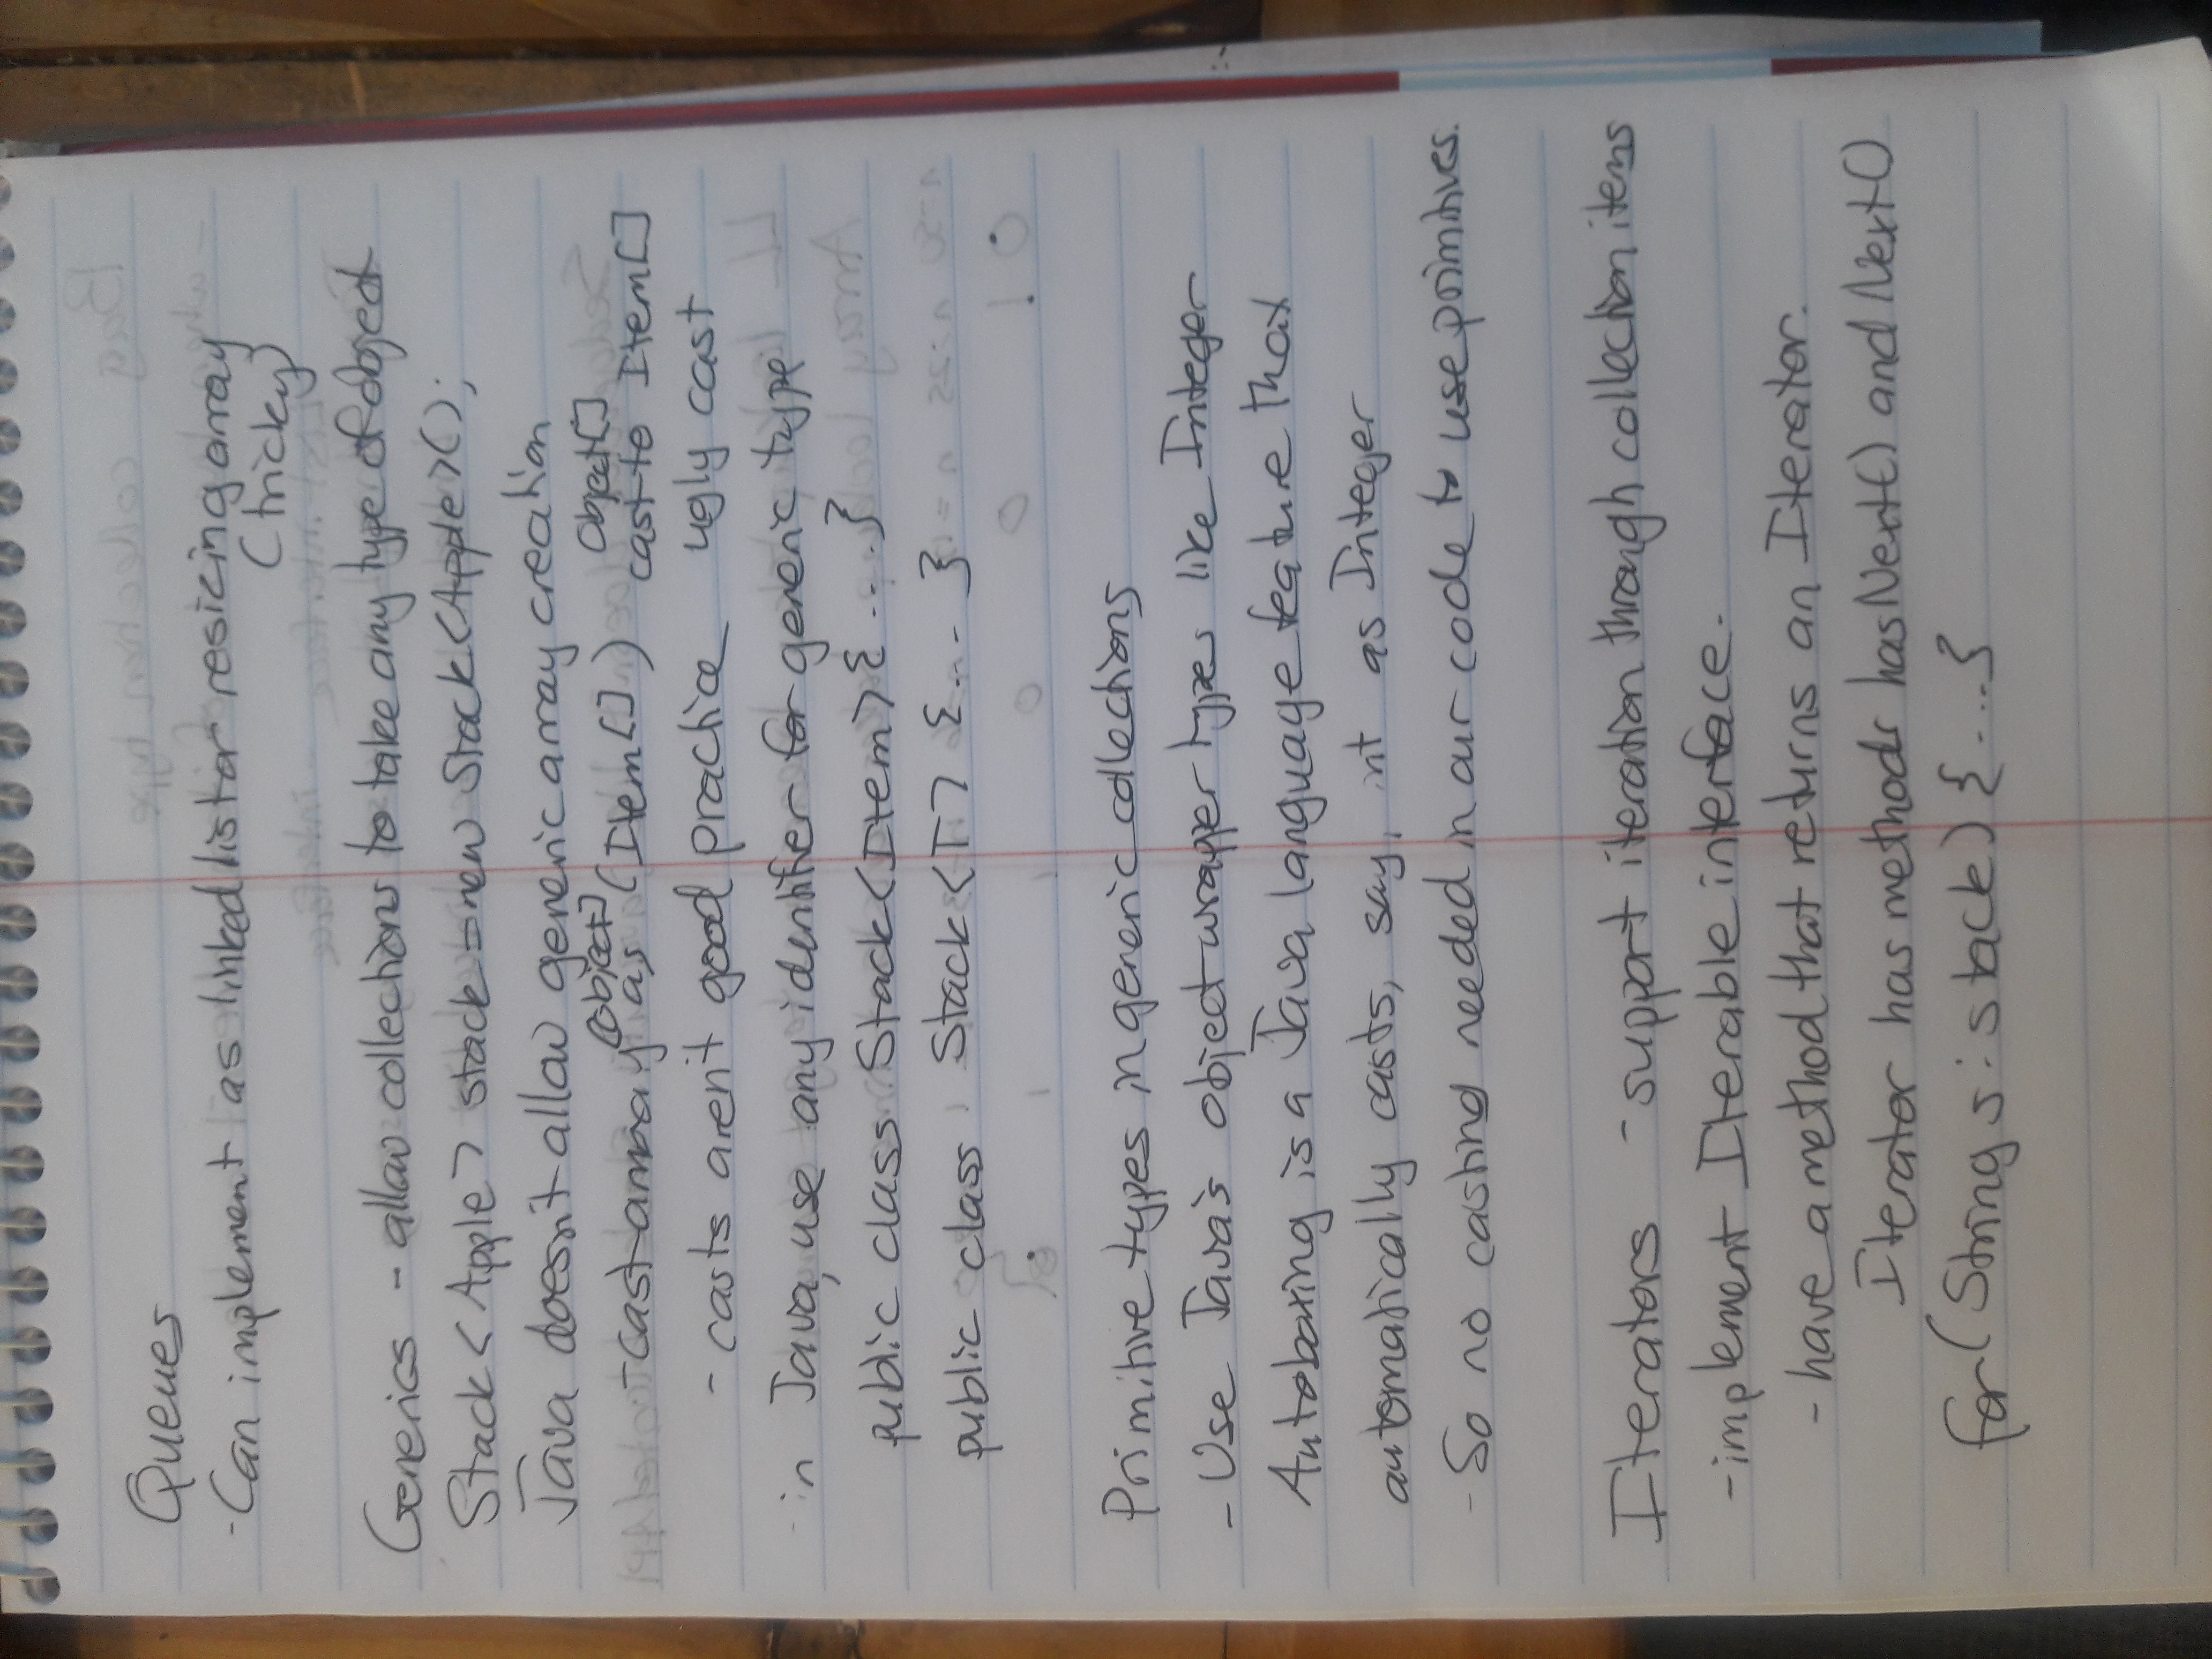 Queues
- Can implement as linked list or resizing array
(tricky)
Generics - allow collections to take any type of object
Stack<Apple> stack = new Stack<Apple>();
Java doesn't allow generic array creation
[object] Object[]
- cast array as (Item[]) cast to Item[]
- casts aren't good practice ugly cast
- in Java, use any identifier for generic type
public class Stack<Item>{ ... }
public class Stack<T> {... }
Primitive types in generic collections
- Use Java's object wrapper types like Integer
Autoboxing is a Java language feature that
automatically casts, say, int as Integer
- So no casting needed in our code to use primitives.
Iterators - support iteration through collection items
- implement Iterable interface.
- have a method that returns an Iterator.
Iterator has methods hasNext() and Next()
for (String s : stack) {....}